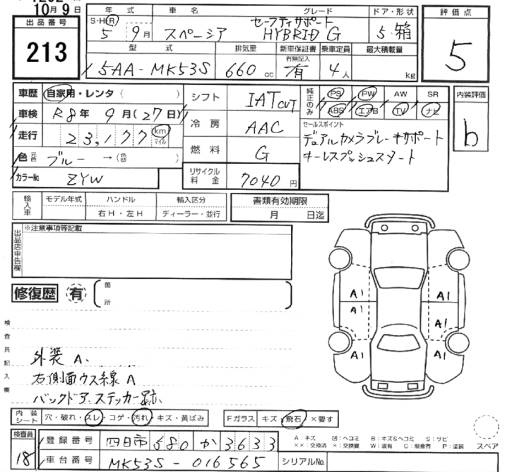 10月9日
出品番号
213
年式 車名 グレード ドア・形状 評価点
S・H・R 5年 9月 スペーシア セーフティサポート HYBRID G 5 箱 5
型式 排気量 新車保証書 乗車定員 最大積載量
有無記入
5AA-MK53S 660cc 有 4人 kg
車歴 自家用・レンタ( )
車検 R8年9月(27日)
走行 23,177 km マイル
色 元色 ブルー →(色替 )
カラーNo. ZYW
シフト IAT CVT
冷房 AAC
燃料 G
リサイクル料金 7040円
純正のみ PS PW AW SR
ABS エアB TV ナビ
内装評価
b
セールスポイント
デュアルカメラブレーキサポート
キーレスプッシュスタート
輸入車 モデル年式 ハンドル 輸入区分
年 右H・左H ディーラー・並行
書類有効期限
月 日迄
出品店申告欄
※注意事項等記載
修復歴 有 箇所
検査員記入欄
外装A.
右側面ウス線A
バックドア.ステッカー跡.
A1 A1
A1 A1
内装シート 穴・破れ・スレ・コゲ・汚れ・キズ・黄ばみ
Fガラス キズ・飛石・×要す
検査員
18
登録番号 四日市 580 か 3633
車台番号 MK53S-016565
シリアルNo.
A キズ U ヘコミ B キズ&ヘコミ S サビ
×× 交換済 × 要交換 W 波有 C 腐食 P 塗装
スペア